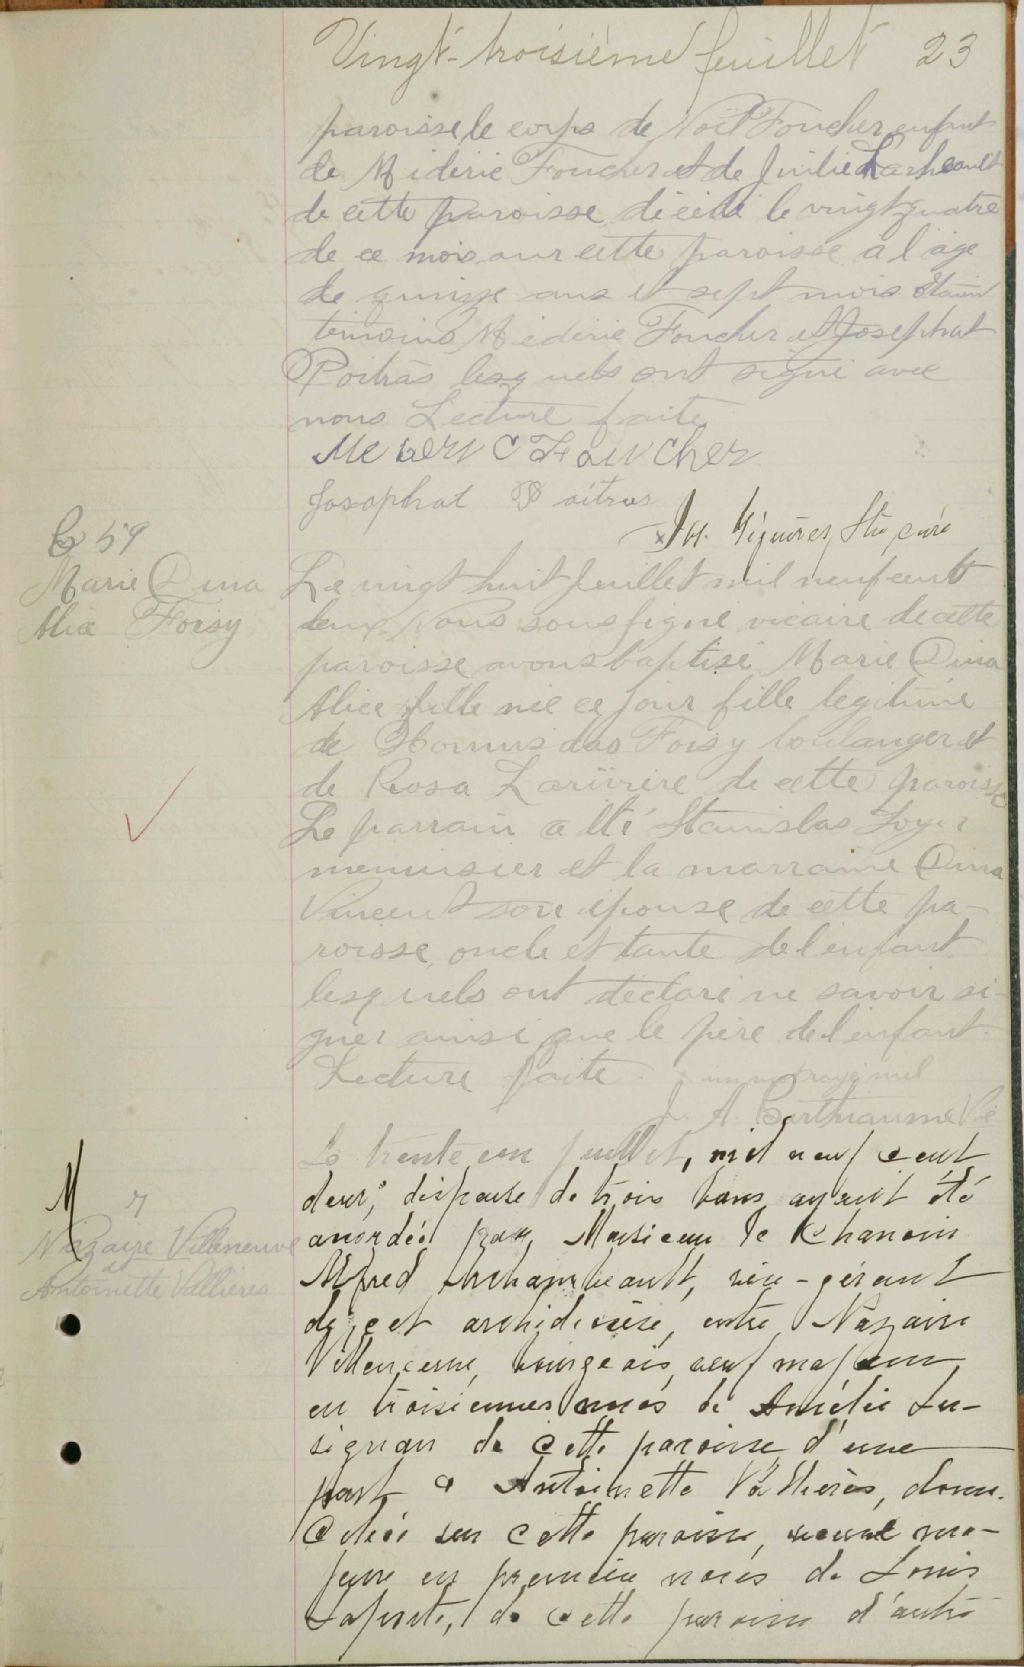 Vingt-troisième feuillet 23
paroisse le corps de Noël Foucher enfant
de Médéric Foucher et de Julie Larcheault
de cette paroisse, décédé le vingt quatre
de ce mois sur cette paroisse à l'âge
de quinze ans et sept mois étaient
témoins Médéric Foucher et Josephat
Poitras lesquels ont signé avec
nous Lecture faite.
Mederic Foucher
Josaphat Poitras
Ptre curé
B 59
Marie Dina
Alice Foisy
Le vingt huit Juillet mil neuf cent
deux Nous soussigné vicaire de cette
paroisse avons baptisé Marie Dina
Alice fille née ce jour fille légitime
de Hormisdas Foisy boulanger et
de Rosa Larivière de cette paroisse
Le parrain a été Stanislas Loyer
menuisier et la marraine Dina
Vincent son épouse de cette pa-
roisse, oncle et tante de l'enfant
lesquels ont déclaré ne savoir si-
gner ainsi que le père de l'enfant.
Lecture faite.
J. A. Berthiaume Vic
M 7
Nazaire Villeneuve
&
Antoinette Vallières
Le trente un juillet, mil neuf cent
deux, dispense de trois bans ayant été
accordée par Monsieur le Chanoine
Alfred Archambeault, vice-gérant
de cet archidiocèse, entre Nazaire
Villeneuve, bourgeois, veuf majeur
en troisièmes noces de Amélie Lu-
signan de cette paroisse d'une
part & Antoinette Vallières, domi-
ciliée sur cette paroisse, veuve ma-
jeure en première noces de Louis
Laporte, de cette paroisse d'autre